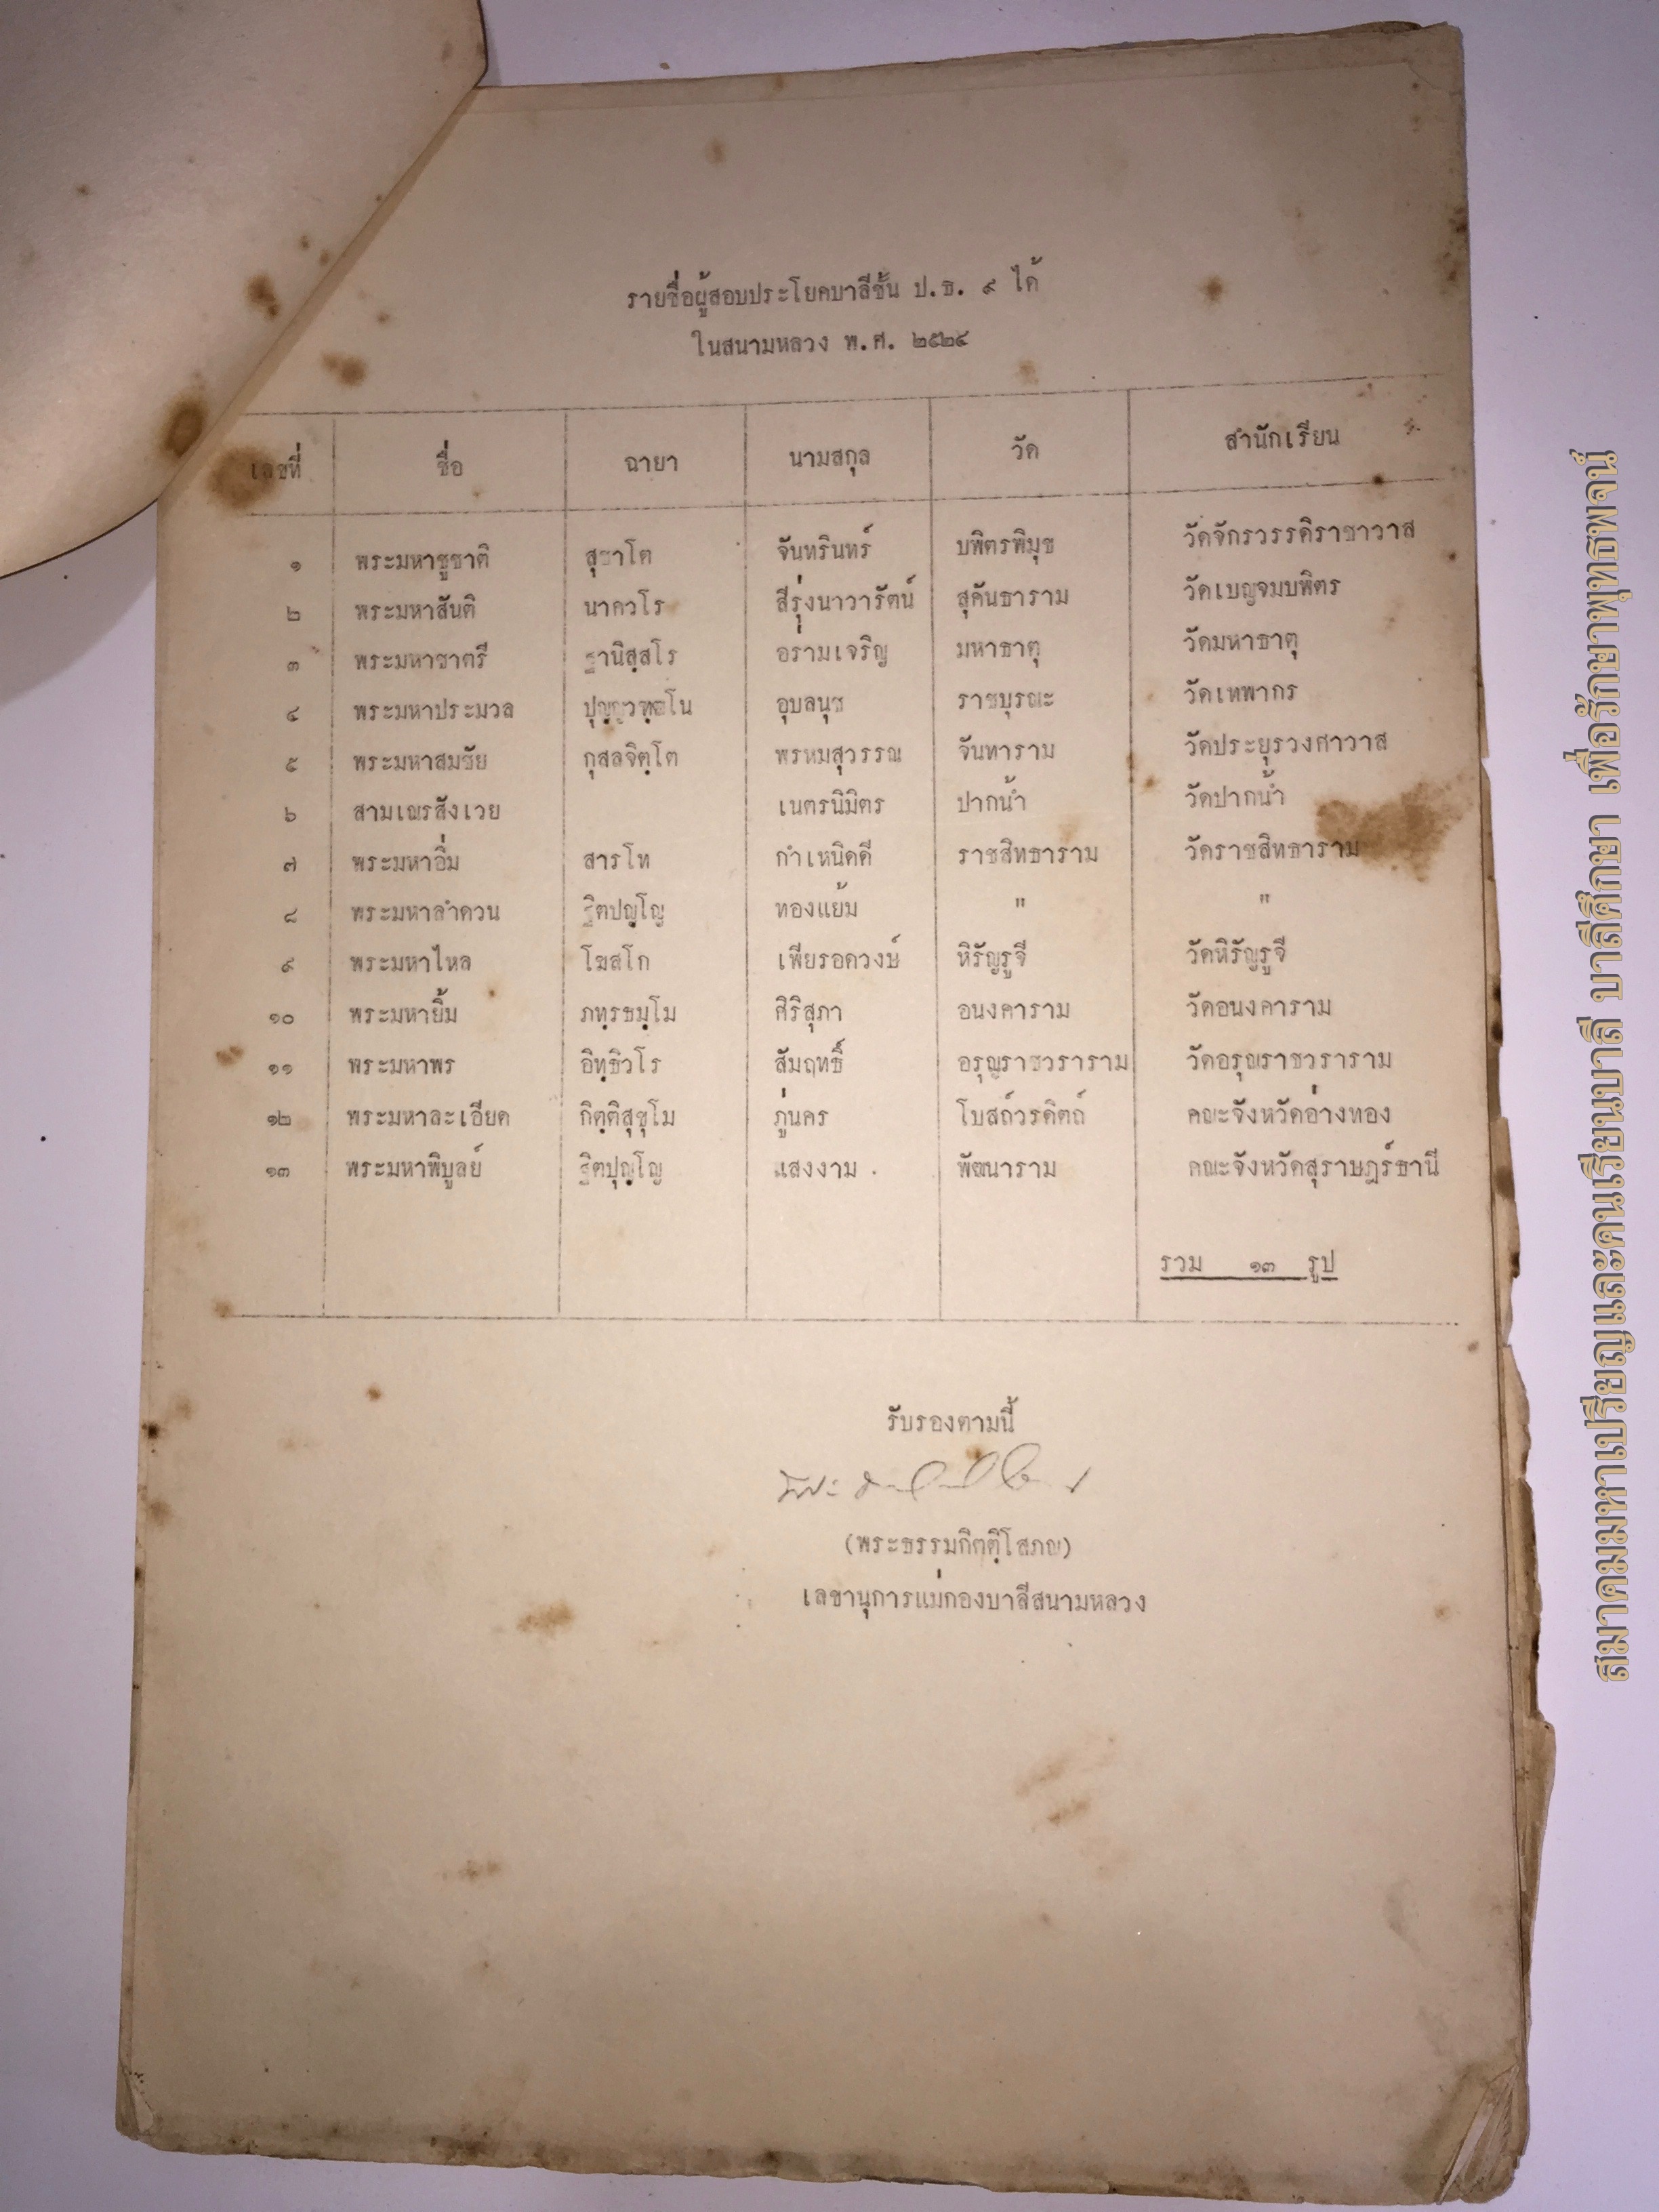 รายชื่อผู้สอบประโยคบาลีชั้น ป.ธ. ๙ ได้
ในสนามหลวง พ.ศ. ๒๕๒๔
เลขที่ ชื่อ ฉายา นามสกุล วัด สำนักเรียน
๑ พระมหาชูชาติ สุชาโต จันทรินทร์ บพิตรพิมุข วัดจักรวรรดิราชาวาส
๒ พระมหาสันติ นาควโร สีรุ่งนาวารัตน์ สุคันธาราม วัดเบญจมบพิตร
๓ พระมหาชาตรี ฐานิสฺสโร อร่ามเจริญ มหาธาตุ วัดมหาธาตุ
๔ พระมหาประมวล ปุญฺญวฑฺฒโน อุบลนุช ราชบุรณะ วัดเทพากร
๕ พระมหาสมชัย กุสลจิตฺโต พรหมสุวรรณ จันทาราม วัดประยุรวงศาวาส
๖ สามเณรสังเวย เนตรนิมิตร ปากน้ำ วัดปากน้ำ
๗ พระมหาอิ่ม สารโท กำเหนิดดี ราชสิทธาราม วัดราชสิทธาราม
๘ พระมหาลำดวน ฐิตปญฺโญ ทองแย้ม " "
๙ พระมหาไหล โฆสโก เพียรอดวงษ์ หิรัญรูจี วัดหิรัญรูจี
๑๐ พระมหายิ้ม ภทฺรธมฺโม ศิริสุภา อนงคาราม วัดอนงคาราม
๑๑ พระมหาพร อิทฺธิวโร สัมฤทธิ์ อรุณราชวราราม วัดอรุณราชวราราม
๑๒ พระมหาละเอียด กิตฺติสุขุโม ภู่นคร โบสถ์วรดิตถ์ คณะจังหวัดอ่างทอง
๑๓ พระมหาพิบูลย์ ฐิตปุญฺโญ แสงงาม พัฒนาราม คณะจังหวัดสุราษฎร์ธานี
รวม ๑๓ รูป
รับรองตามนี้
(พระธรรมกิตฺติโสภณ)
เลขานุการแม่กองบาลีสนามหลวง
สมาคมมหาเปรียญและคนเรียนบาลี บาลีศึกษา เพื่อรักษาพุทธพจน์